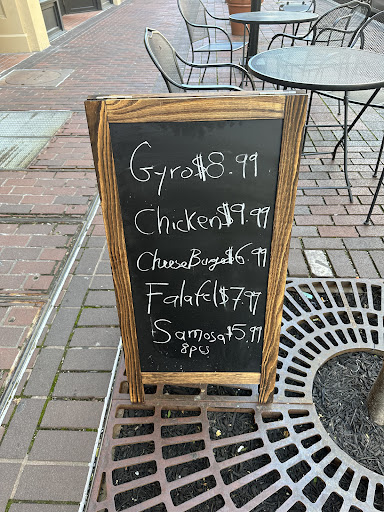 Gyro$8.99
Chicken$9.99
CheeseBurger$6.99
Falafel$7.99
Samosa$5.99
8pcs